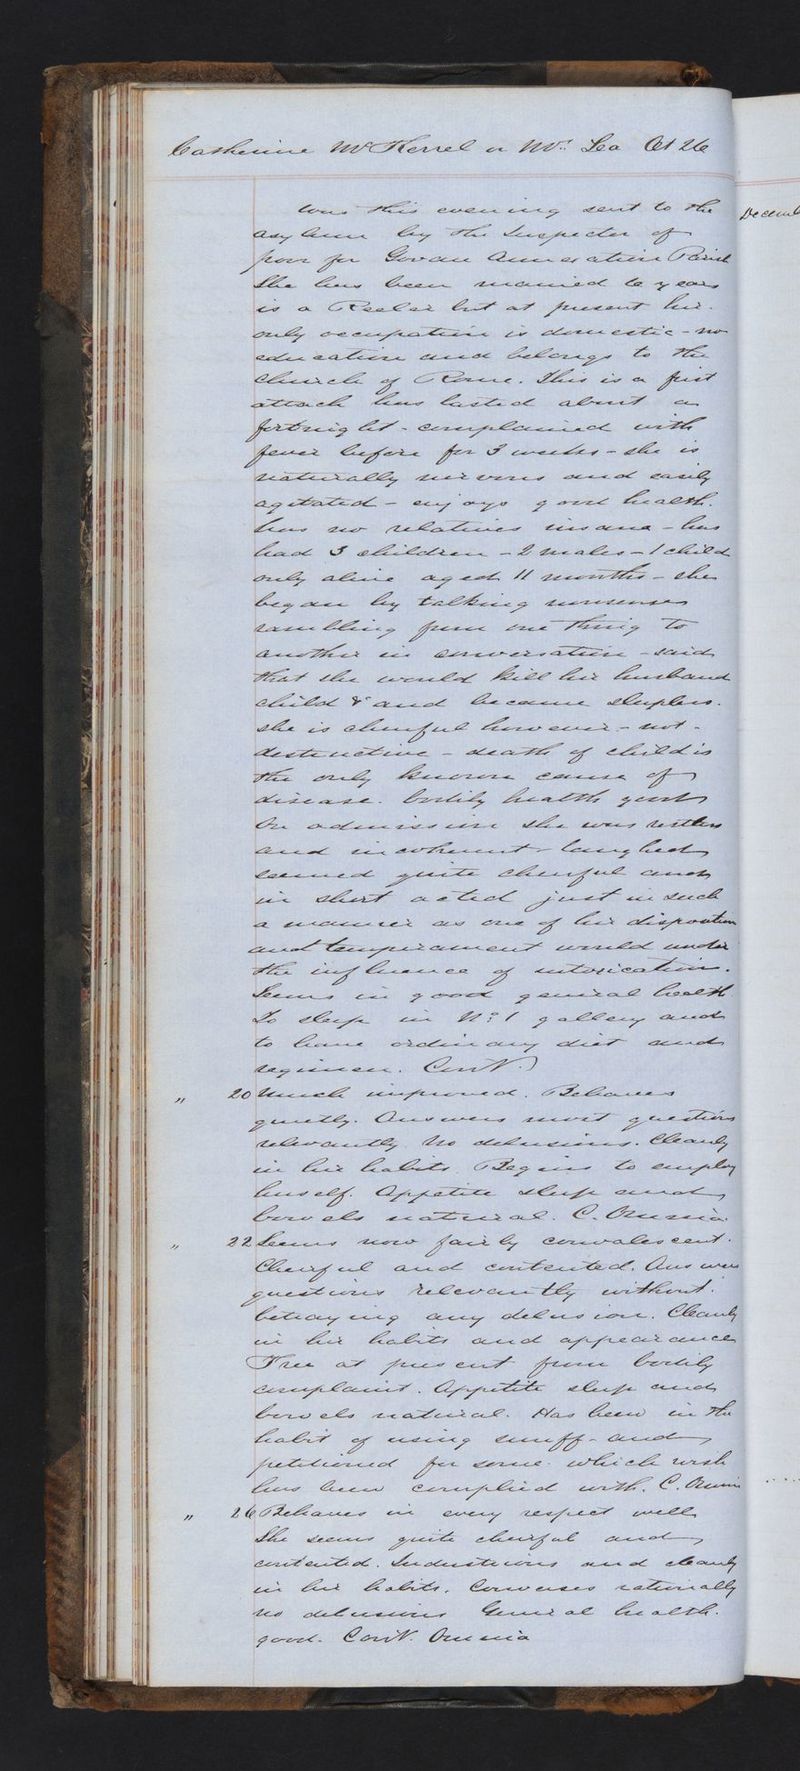 Catherine McKerrel or Mc Lea Æt 26
was this evening sent to the
asylum by the Inspector of
poor for Govan Annexation Parish
She has been married 6 years
is a Reeler but at present her
only occupation is domestic - no
education and belongs to the
Church of Rome. This is a first
attack has lasted about a
fortnight - complained with
fever before for 3 weeks - she is
naturally nervous and easily
agitated - enjoys good health.
has no relatives insane - has
had 3 children - 2 males - 1 child
only alive aged 11 months - she
began by talking nonsense
rambling from one thing to
another in conversation - said
that she would kill her husband
child & and became sleepless.
she is cheerful however - not
destructive - death of child is
the only known cause of
disease. bodily health good
On admission she was restless
and incoherent - laughed
seemed quite cheerful and
in short acted just in such
a manner as one of her disposition
and temperament would under
the influence of intoxication.
Seems in good general health
To sleep in No. 1 gallery and
to have ordinary diet and
regimen. Cont.
" 20 Much improved. Behaves
quietly. Answers most questions
relevantly. No delusions. Cleanly
in her habits. Begins to employ
herself. Appetite sleep and
bowels natural. C. Omnia
" 22 Seems now fairly convalescent.
Cheerful and contented. Answers
questions relevantly without
betraying any delusion. Cleanly
in her habits and appearance
Free at present from bodily
complaint. Appetite sleep and
bowels natural. Has been in the
habit of using snuff - and
petitioned for some which wish
has been complied with. C. Omnia
" 26 Behaves in every respect well
She seems quite cheerful and
contented. Industrious and cleanly
in her habits. Converses rationally
no delusions General health
good. Cont. Omnia
Decemb